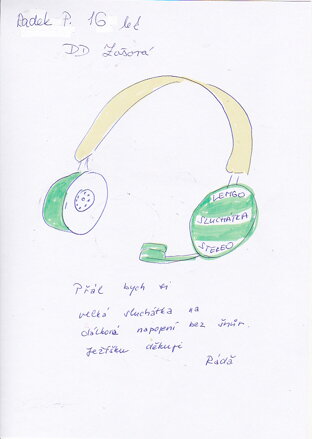 Radek P. 16 let
DD Zašová
LEMGO
SLUCHÁTKA
STEREO
Přál bych si
velká sluchátka na
dálková napojení bez šnůr.
Ježíšku děkuji
Ráďa